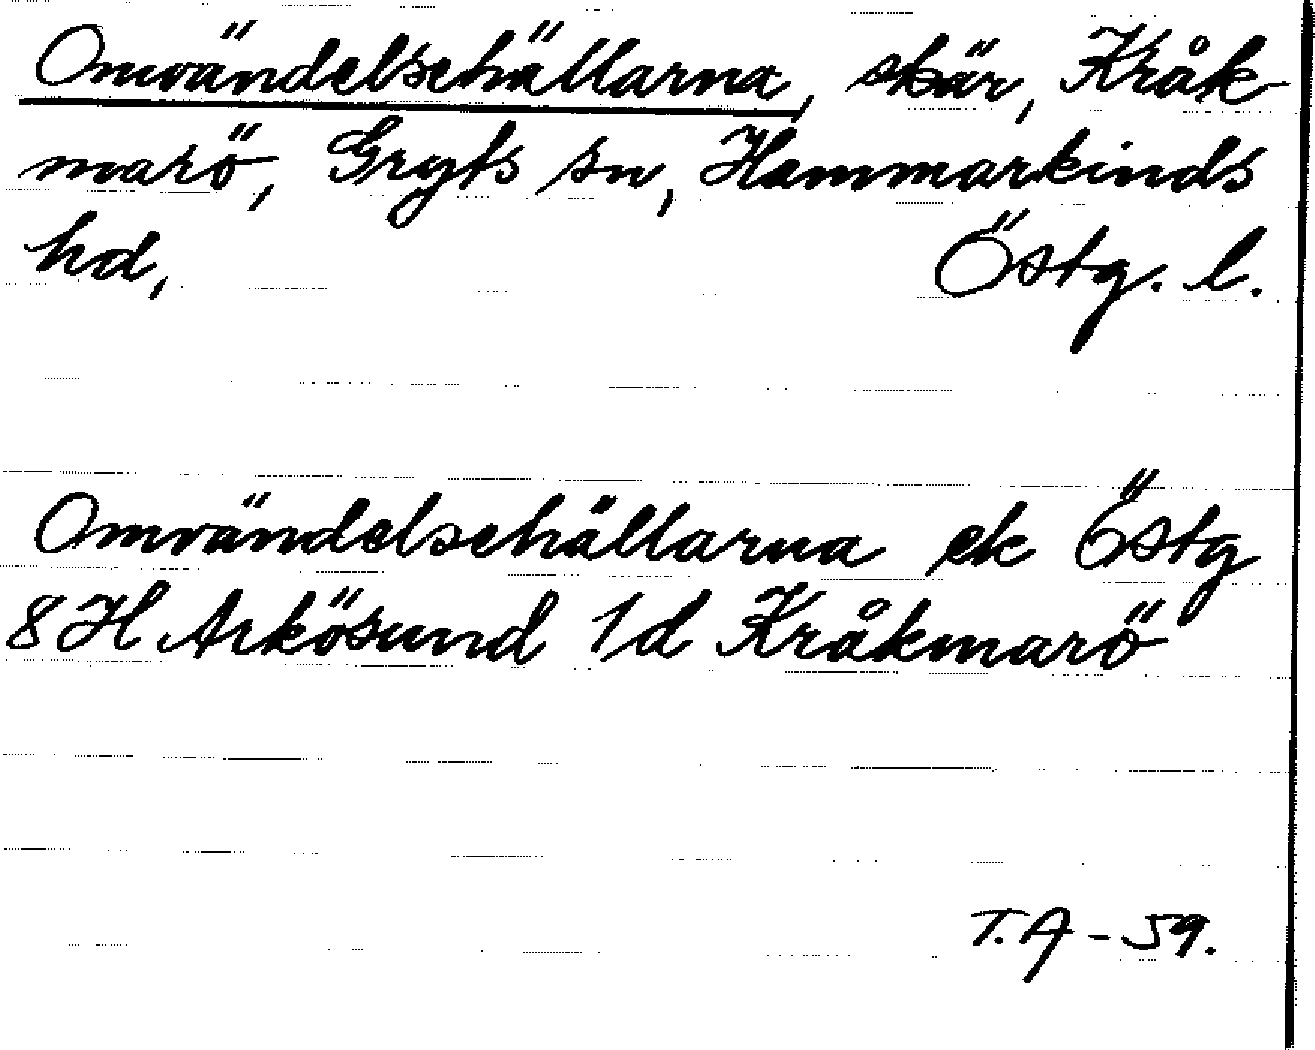 Omvändelsehällarna, skär, Kråk-
marö, Gryts sn, Hammarkinds
hd, Östg. l.
Omvändelsehällarna ek Östg
8H Arkösund 1d Kråkmarö
T.A - 59.